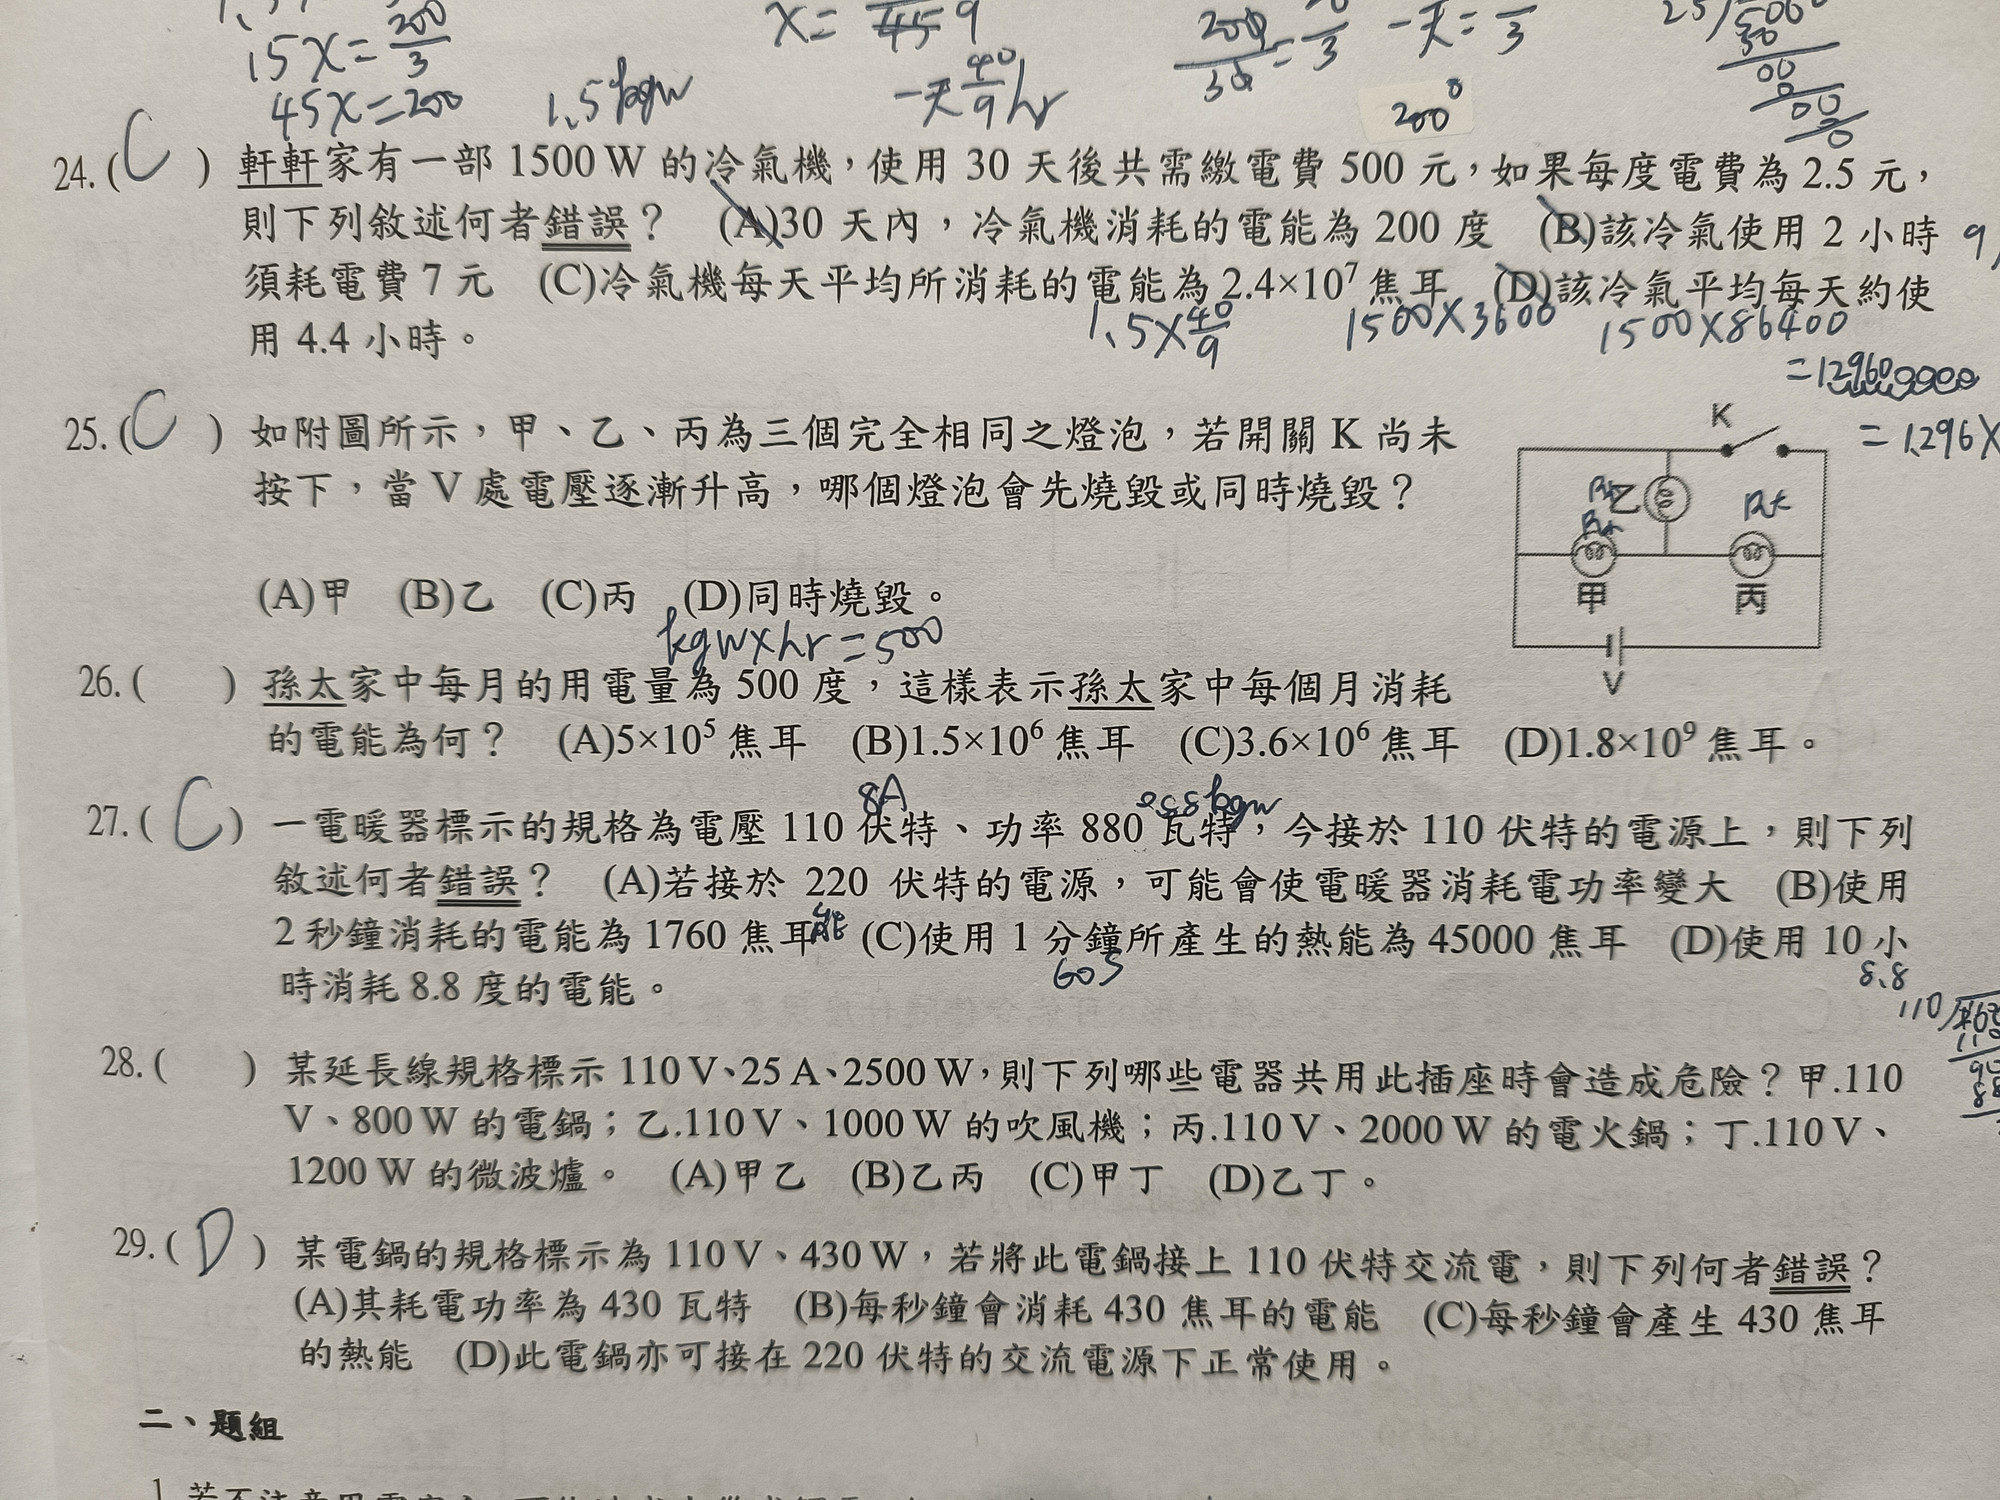 15x=200/3
45x=200
1.5kgw
x= 45 9
一天 40/9 hr
一天= 3
200
24.(C) 軒軒家有一部 1500 W 的冷氣機，使用 30 天後共需繳電費 500 元，如果每度電費為 2.5 元，
則下列敘述何者錯誤？ (A)30 天內，冷氣機消耗的電能為 200 度 (B)該冷氣使用 2 小時
須耗電費 7 元 (C)冷氣機每天平均所消耗的電能為 2.4×10⁷ 焦耳 (D)該冷氣平均每天約使
用 4.4 小時。
1.5×40/9
1500×3600
1500×86400
=1296000000
=1.296×
25.(C) 如附圖所示，甲、乙、丙為三個完全相同之燈泡，若開關 K 尚未
按下，當 V 處電壓逐漸升高，哪個燈泡會先燒毀或同時燒毀？
(A)甲 (B)乙 (C)丙 (D)同時燒毀。
K
乙
R大
甲
丙
V
kgw×hr=500
26.( ) 孫太家中每月的用電量為 500 度，這樣表示孫太家中每個月消耗
的電能為何？ (A)5×10⁵ 焦耳 (B)1.5×10⁶ 焦耳 (C)3.6×10⁶ 焦耳 (D)1.8×10⁹ 焦耳。
8A
0.88kgw
27.(C) 一電暖器標示的規格為電壓 110 伏特、功率 880 瓦特，今接於 110 伏特的電源上，則下列
敘述何者錯誤？ (A)若接於 220 伏特的電源，可能會使電暖器消耗電功率變大 (B)使用
2 秒鐘消耗的電能為 1760 焦耳 (C)使用 1 分鐘所產生的熱能為 45000 焦耳 (D)使用 10 小
時消耗 8.8 度的電能。
60s
8.8
110
28.( ) 某延長線規格標示 110 V、25 A、2500 W，則下列哪些電器共用此插座時會造成危險？甲.110
V、800 W 的電鍋；乙.110 V、1000 W 的吹風機；丙.110 V、2000 W 的電火鍋；丁.110 V、
1200 W 的微波爐。 (A)甲乙 (B)乙丙 (C)甲丁 (D)乙丁。
29.(D) 某電鍋的規格標示為 110 V、430 W，若將此電鍋接上 110 伏特交流電，則下列何者錯誤？
(A)其耗電功率為 430 瓦特 (B)每秒鐘會消耗 430 焦耳的電能 (C)每秒鐘會產生 430 焦耳
的熱能 (D)此電鍋亦可接在 220 伏特的交流電源下正常使用。
二、題組